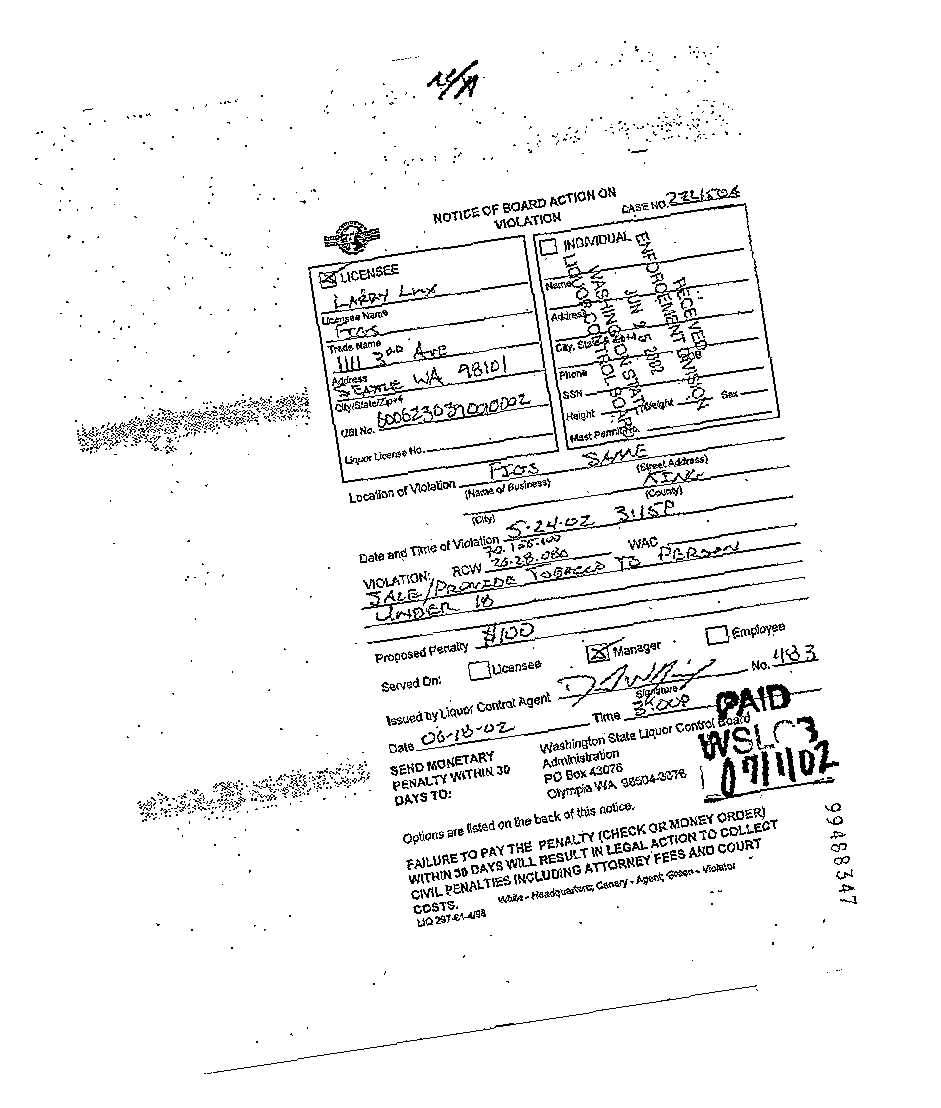 N/A
NOTICE OF BOARD ACTION ON
VIOLATION
CASE NO.
LICENSEE
LARRY LUX
Licensee Name
FIGS
Trade Name
1111 3RD AVE
Address
SEATTLE WA 98101
City/State/Zip+4
UBI No.
Liquor License No.
INDIVIDUAL
Name
Address
City, State
Phone
SSN
Height Weight Sex
Mast Permit No.
RECEIVED
ENFORCEMENT DIVISION
JUN 25 2002
WASHINGTON STATE
LIQUOR CONTROL BOARD
Location of Violation FIGS SAME
(Name of Business) (Street Address)
KING
(City) (County)
Date and Time of Violation 5-24-02 3:15P
70.155.100
VIOLATION: RCW 26.28.080 WAC
SALE/PROVIDE TOBACCO TO PERSON
UNDER 18
Proposed Penalty $100
Served On: Licensee Manager Employee
Issued by Liquor Control Agent No. 483
Signature
Date 06-18-02 Time 3:00P
SEND MONETARY
PENALTY WITHIN 30
DAYS TO:
Washington State Liquor Control Board
Administration
PO Box 43076
Olympia WA 98504-3076
PAID
07/1/02
Options are listed on the back of this notice.
FAILURE TO PAY THE PENALTY (CHECK OR MONEY ORDER)
WITHIN 30 DAYS WILL RESULT IN LEGAL ACTION TO COLLECT
CIVIL PENALTIES INCLUDING ATTORNEY FEES AND COURT
COSTS.
White - Headquarters; Canary - Agent; Green - Violator
LIQ 297-61-4/98
99468347